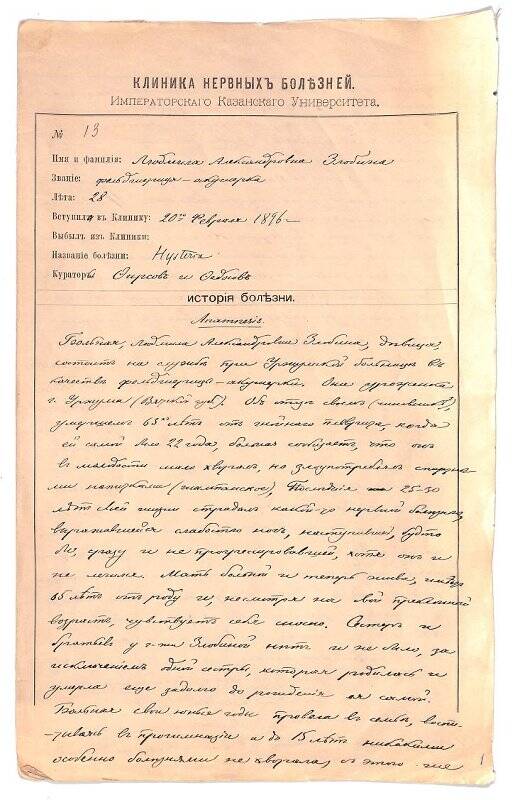 КЛИНИКА НЕРВНЫХЪ БОЛѢЗНЕЙ.
Императорскаго Казанскаго Университета.
№ 13
Имя и фамилія: Людмила Александровна Злобина
Званіе: фельдшерица-акушерка
Лѣта: 28
Вступила въ Клинику: 20го Февраля 1896
Выбылъ изъ Клиники:
Названіе болѣзни: Hysteria
Кураторы: Фирсов и
ИСТОРІЯ БОЛѢЗНИ.
Anamnesis.
Больная, Людмила Александровна Злобина, дѣвица,
состоитъ на службѣ при Уржумской больницѣ въ
качествѣ фельдшерицы-акушерки. Она уроженка
г. Уржума (Вятской губ.). Объ отцѣ своемъ (чиновникѣ),
умершемъ 65 лѣтъ отъ гнойнаго плеврита, когда
ей самой было 22 года, больная сообщаетъ, что онъ
въ молодости мало хворалъ, но злоупотреблялъ спиртны-
ми напитками (шампанское), Послѣдніе 25-30
лѣтъ своей жизни страдалъ какой-то нервной болѣзнью,
выражавшейся слабостью ногъ, наступившей будто
бы сразу и не прогрессировавшей, хотя онъ и
не лечился. Мать больной и теперь жива, имѣетъ
65 лѣтъ отъ роду и, несмотря на свой преклонный
возрастъ, чувствуетъ себя сносно. Сестеръ и
братьевъ у г-жи Злобиной нѣтъ и не было, за
исключеніемъ одной сестры, которая родилась и
умерла еще задолго до рожденія ея самой.
Больная свои юные годы провела въ семьѣ, воспи-
тывалась въ прогимназіи и до 15 лѣтъ никакими
особенно болѣзнями не хворала, съ этого же
1